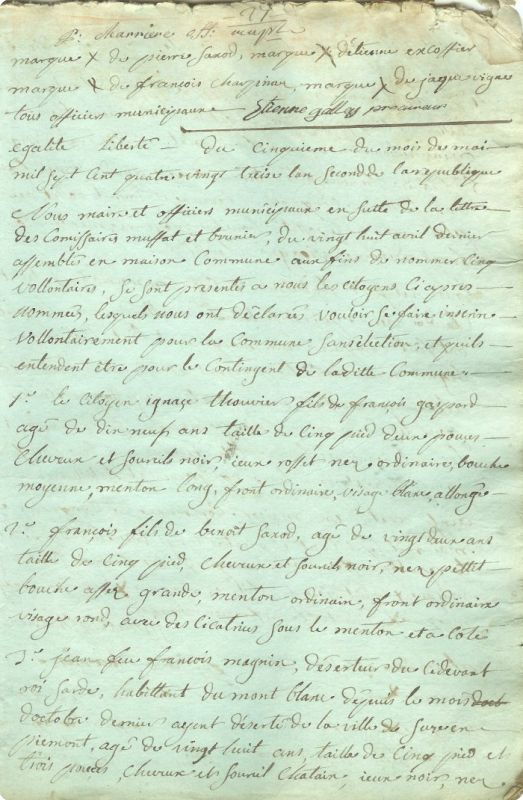 27
P. Marrière
marque x de pierre Saxod, marque x d'étienne excoffier
marque x de françois Charpinae, marque x de jaque vigne
tous officiers municipaux Etienne gallay procureur
egalite liberté — du Cinquieme du mois de mai
mil sept Cent quatre vingt treis lan second de la republique
Nous maire et officiers municipaux en suitte de la lettre
des Comissaires muffat et brunier, du vingt huit avril dernier
assemblés en maison Commune aux fins de nommer Cinq
vollontaires, se sont presentés a nous les citoyens Ciapres
nommés, lesquels nous ont déclarés vouloir se faire inscrire
vollontairement pour la Commune sans élection, et quils
entendent être pour le Contingent de laditte Commune:
1.º le Citoyen ignace thouvier fils de françois gaspard
agé de dix neuf ans taille de Cinq pied deux pouces
Cheveux et Sourcils noir, ieux rosset nez ordinaire, bouche
moyenne, menton long, front ordinaire, visage blanc, allongé
2.º françois fils de benoît Saxod, agé de vingt deux ans
taille de Cinq pied, Cheveux et Sourcils noir, nez pettit
bouche assez grande, menton ordinaire, front ordinaire
visage rond, avec des Cicatrices sous le menton et a Coté
3.º jean feu françois magnin, déserteur du Cidevant
roi Sarde, habittant du mont blanc depuis le mois
doctobre dernier ayent déserté de la ville de Suze en
piemont, agé de vingt huit ans, taille de Cinq pied et
trois pouces, Cheveux et Sourcil Chatain, ieux noir, nez